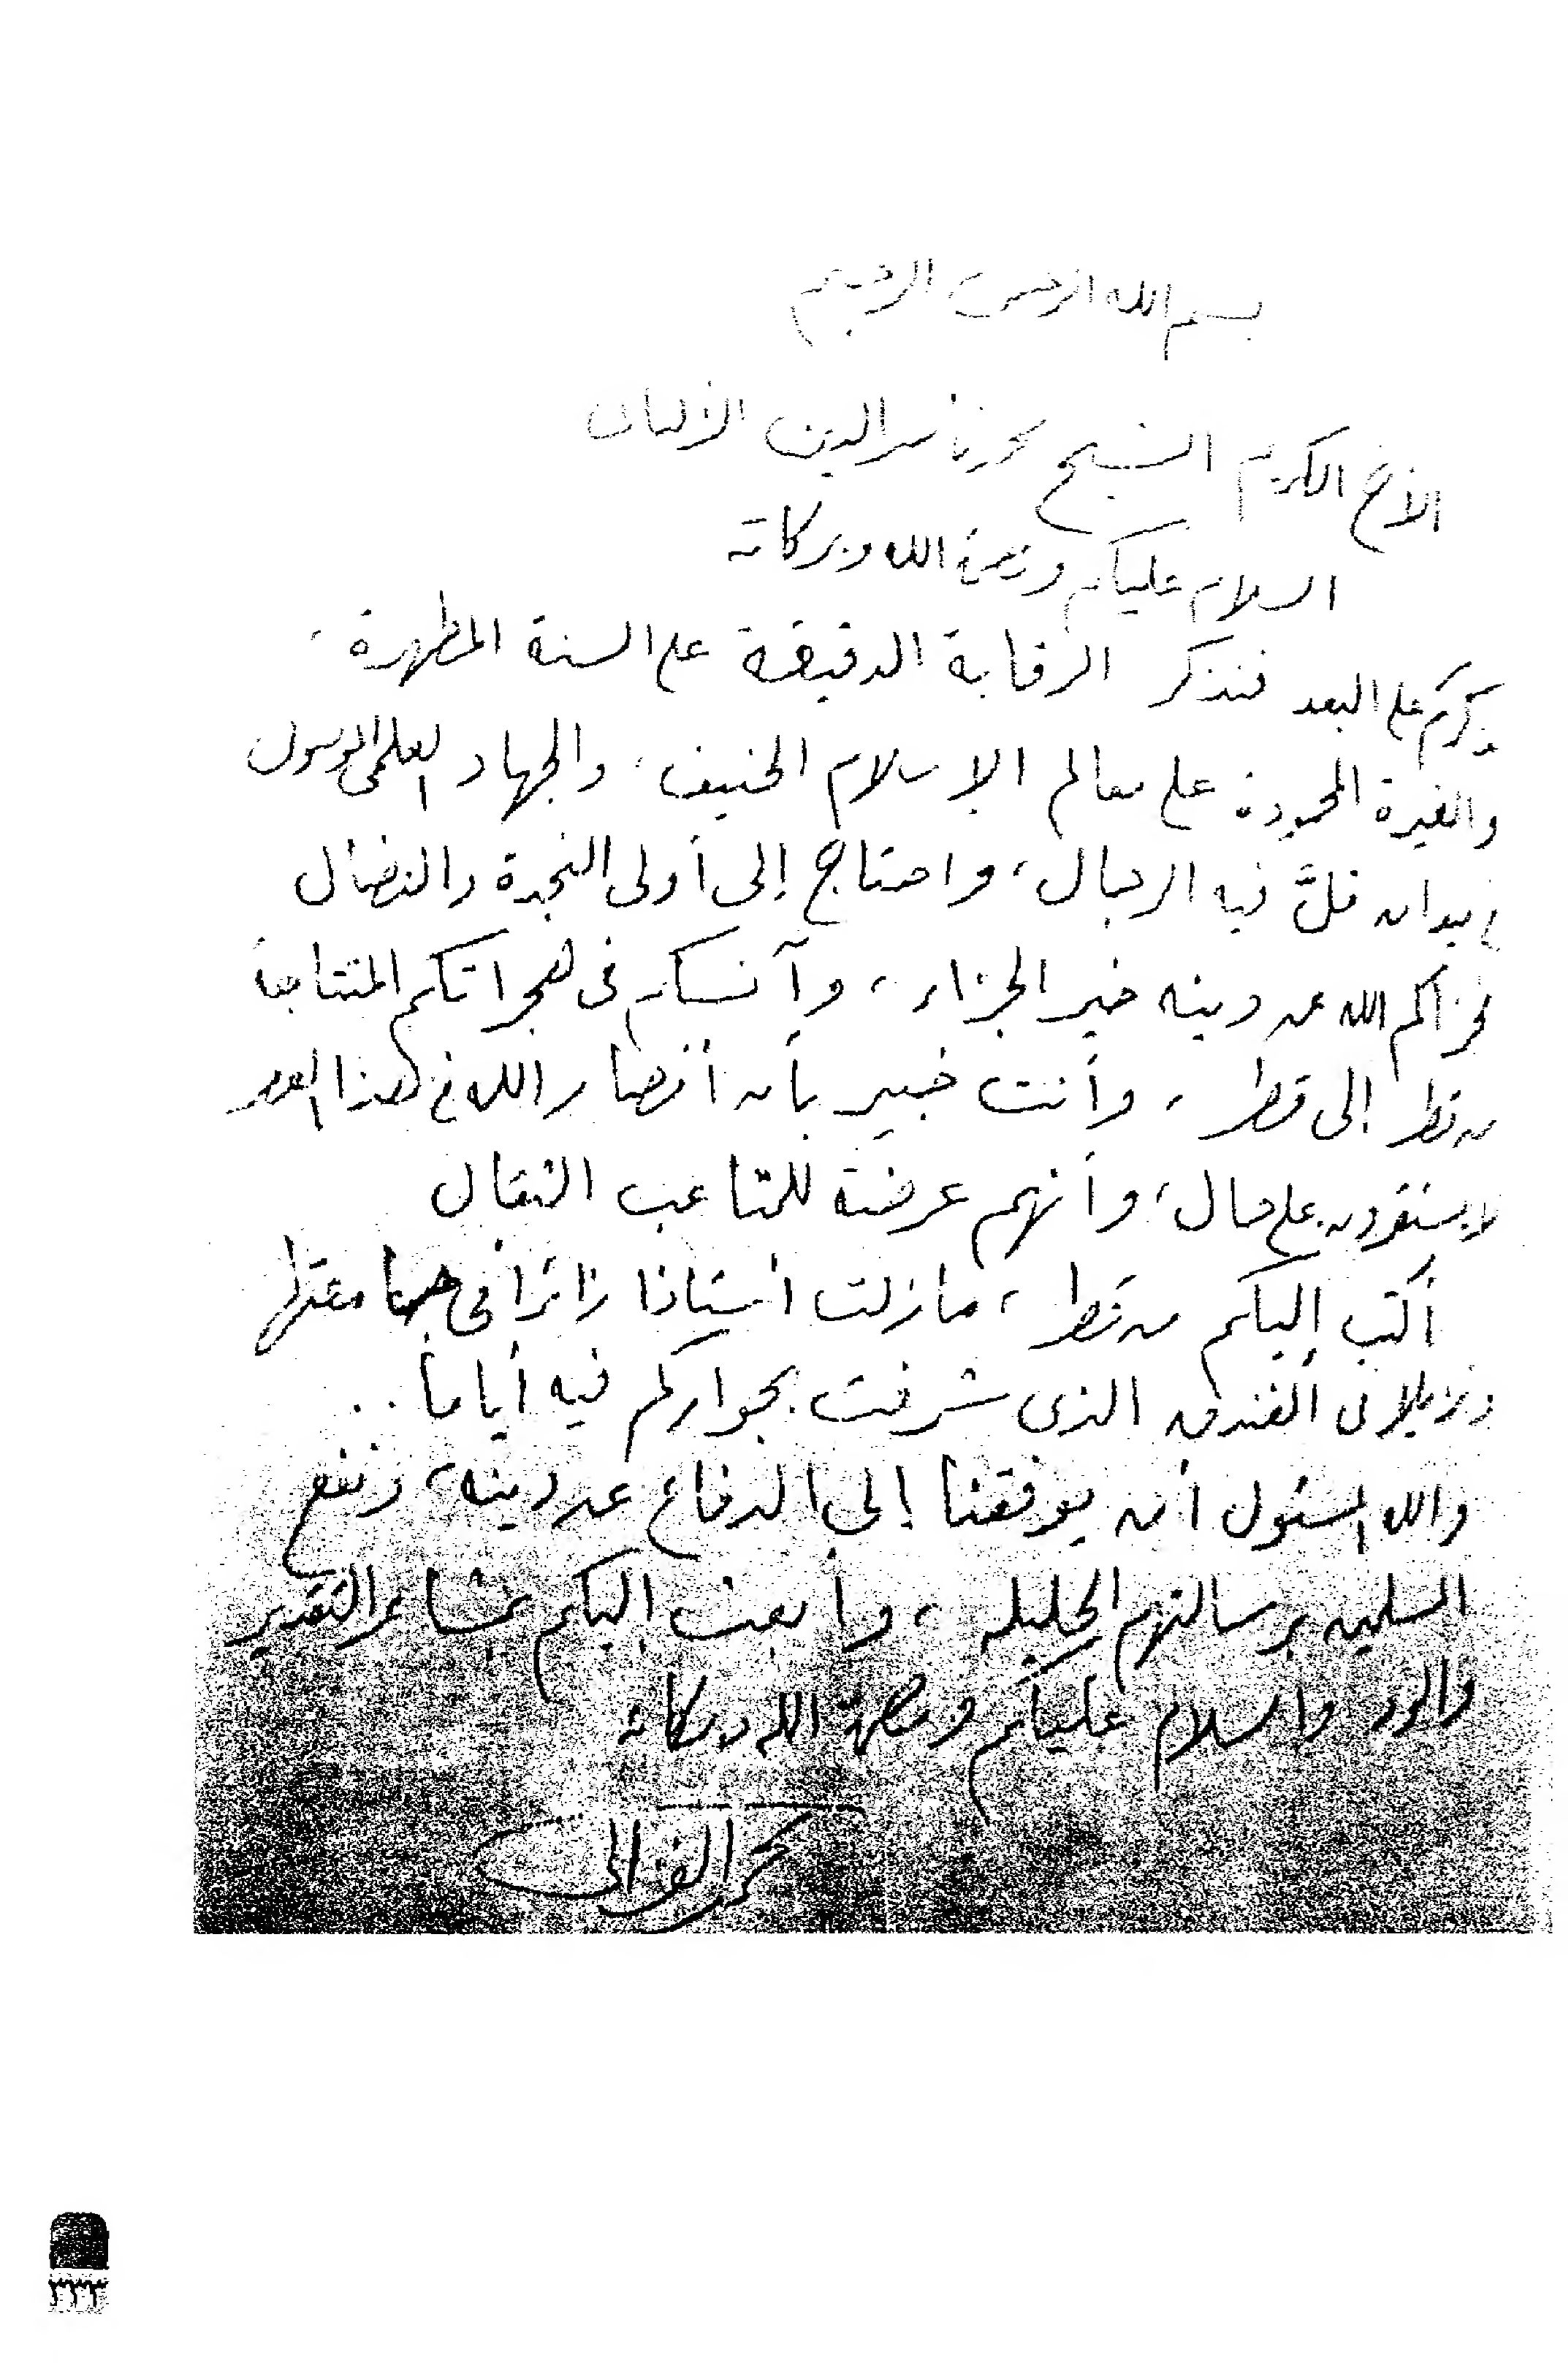 بسم الله الرحمن الرحيم
الأخ الكريم الشيخ محمد ناصر الدين الألبانى
السلام عليكم ورحمة الله وبركاته
على البعد فنذكر الرقابة الدقيقة على السنة المطهرة،
والغيرة المحمودة على معالم الإسلام الحنيف، والجهاد العلمى الموصول
فى ميدان قلَّ فيه الرجال، واحتاج إلى أولى النجدة والنضال
فجزاكم الله عن دينه خير الجزاء، وآنسكم فى هجراتكم المتتابعة
من قطر إلى قطر، وأنت خبير بأن أنصار الله فى هذا العصر
لا يستقرون على حال، وأنهم عرضة للمتاعب الثقال
أكتب إليكم من قطر، مازلت أستاذا زائرا فى جامعتها
ونزيلا فى الفندق الذى شرفت بجواركم فيه أياما..
والله المسئول أن يوفقنا إلى الدفاع عن دينه، ونفع
المسلمين برسالتهم الجليلة، وأبعث إليكم بمشاعر التقدير
والود والسلام عليكم ورحمة الله وبركاته
محمد الغزالى
٢٢٢